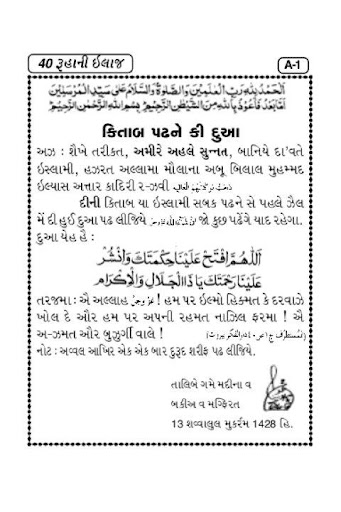 40 રૂહાની ઈલાજ
A-1
اَلْحَمْدُ لِلّٰهِ رَبِّ الْعٰلَمِيْنَ وَالصَّلٰوةُ وَالسَّلَامُ عَلٰى سَيِّدِ الْمُرْسَلِيْنَ
اَمَّا بَعْدُ فَاَعُوْذُ بِاللّٰهِ مِنَ الشَّيْطٰنِ الرَّجِيْمِ بِسْمِ اللّٰهِ الرَّحْمٰنِ الرَّحِيْمِ
કિતાબ પઢને કી દુઆ
અઝ : શૈખે તરીકત, અમીરે અહલે સુન્નત, બાનિયે દા'વતે
ઇસ્લામી, હઝરત અલ્લામા મૌલાના અબૂ બિલાલ મુહમ્મદ
ઇલ્યાસ અત્તાર કાદિરી ર-ઝવી
દીની કિતાબ યા ઇસ્લામી સબક પઢને સે પહલે ઝૈલ
મેં દી હુઈ દુઆ પઢ લીજિયે જો કુછ પઢેંગે યાદ રહેગા.
દુઆ યેહ હૈ :
اَللّٰهُمَّ افْتَحْ عَلَيْنَا حِكْمَتَكَ وَانْشُرْ
عَلَيْنَا رَحْمَتَكَ يَا ذَا الْجَلَالِ وَالْاِكْرَام
તરજમા : ઐ અલ્લાહ عَزَّ وَجَلَّ ! હમ પર ઇલ્મો હિક્મત કે દરવાઝે
ખોલ દે ઔર હમ પર અપની રહમત નાઝિલ ફરમા ! ઐ
અ-ઝમત ઔર બુઝુર્ગી વાલે ! (المُستطرَف ج١ ص٤٠ دارالفکر بيروت)
નોટ : અવ્વલ આખિર એક એક બાર દુરૂદ શરીફ પઢ લીજિયે.
તાલિબે ગમે મદીના વ
બકીઅ વ મગ્ફિરત
13 શવ્વાલુલ મુકર્રમ 1428 હિ.